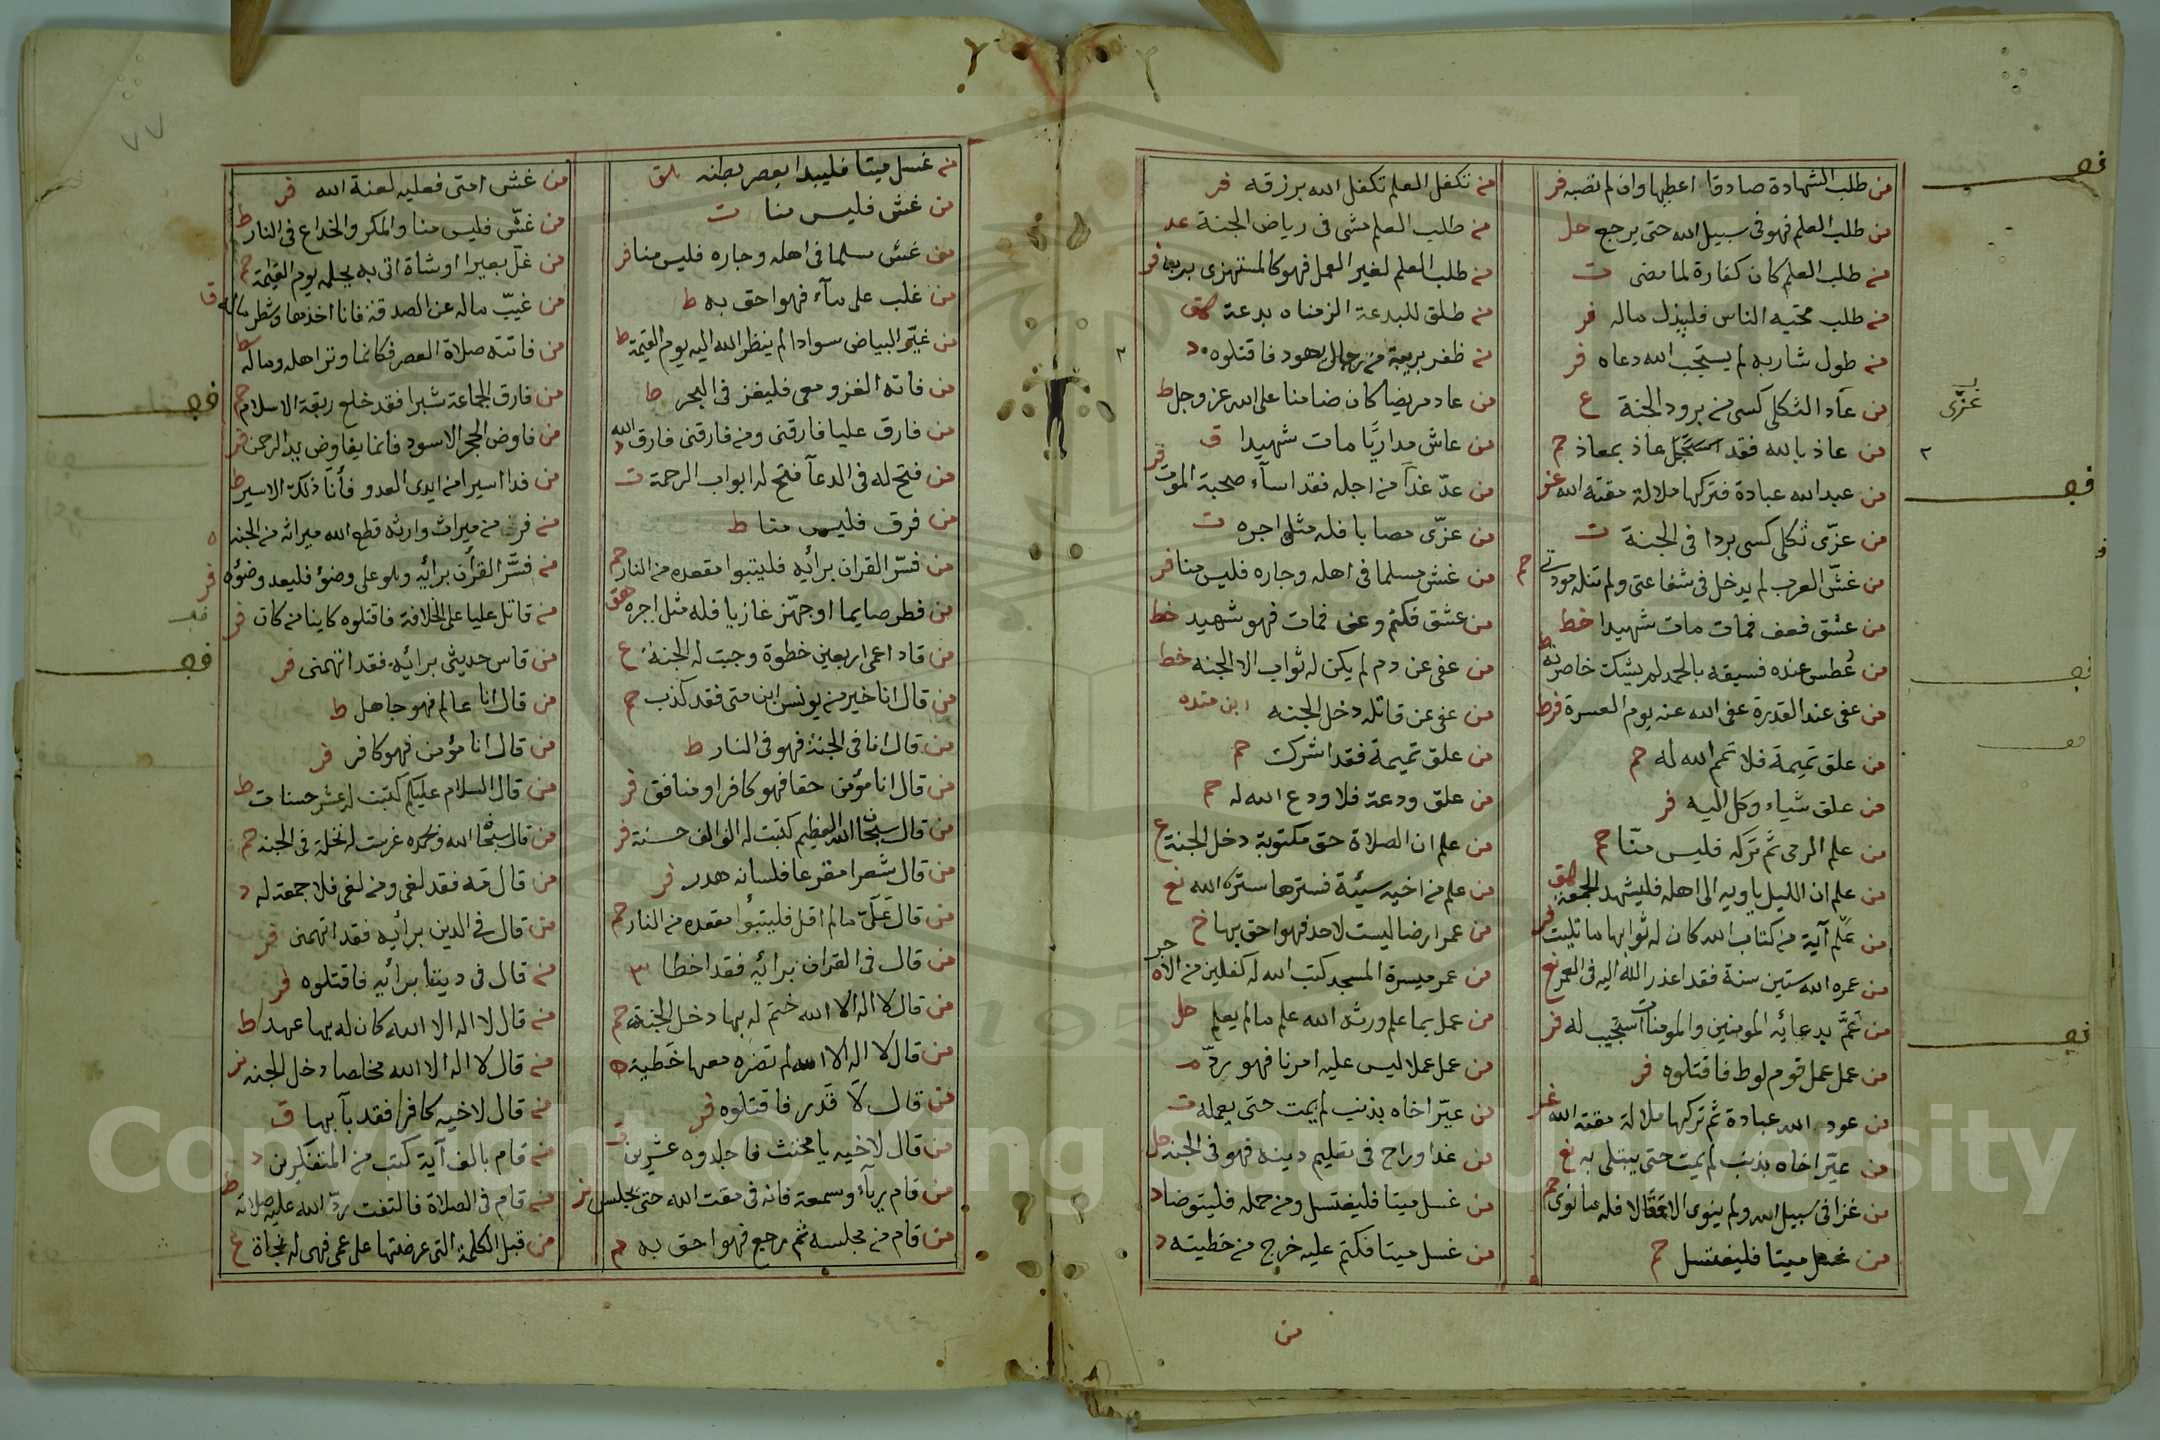 من طلب الشهادة صادقا اعطيها وان لم تصبه فر
من طلب العلم فهو في سبيل الله حتى يرجع حل
من طلب العلم كان كفارة لما مضى ت
من طلب محبة الناس فليبذل ماله فر
من طول شاربه لم يستجب الله دعاه فر
من عاد الثكلى كسي من برود الجنة ع
من عاذ بالله فقد عاذ بمعاذ حم
من عبد الله عبادة فتركها ملالة مقته الله
من عزّى ثكلى كسي بردا في الجنة ت
من غشّ العرب لم يدخل في شفاعتي ولم تنله مودتي حم
من عشق فعف فمات مات شهيدا خط
من عُطس عنده فسبقه بالحمد لم يشتك خاصرته ط
من عفى عند القدرة عفى الله عنه يوم العسرة ط
من علق تميمة فلا تمم الله له حم
من علق شياء وكل اليه فر
من علم الرمى ثم تركه فليس منّا حم
من علم ان الليل ياويه الى اهله فليشهد الجمعة هق
من علّم آية من كتاب الله كان له ثوابها ما تليت
من عمره الله ستين سنة فقد اعذر الله اليه في العمر
من عمّ بدعائه المومنين والمومنات استجيب له فر
من عمل عمل قوم لوط فاقتلوه فر
من عود الله عبادة ثم تركها ملالة مقته الله
من عيّر اخاه بذنب لم يمت حتى يبتلى به
من غزا في سبيل الله ولم ينوى الا عقالا فله ما نوى حم
من غسل ميتا فليغتسل حم
من تكفل العلم تكفل الله برزقه فر
من طلب العلم مشى في رياض الجنة عد
من طلب العلم لغير العمل فهو كالمستهزى بربه فر
من طلق للبدعة الزمناه بدعة هق
من ظفر بربعة من رجال يهود فاقتلوه د
من عاد مريضا كان ضامنا على الله عز وجل ط
من عاش مداريًا مات شهيدا ق
من عدّ غدا من اجله فقد اسآء صحبة الموت
من عزّى مصابا فله مثل اجره ت
من غش مسلما في اهله وجاره فليس منا فر
من عشق فكتم وعف فمات فهو شهيد خط
من عفى عن دم لم يكن له ثواب الا الجنه خط
من عفى عن قاتله دخل الجنه ابن منده
من علق تميمة فقد اشرك حم
من علق ودعة فلا ودع الله له حم
من علم ان الصلاة حق مكتوبة دخل الجنة ع
من علم من اخيه سيئة فسترها ستره الله
من عمر ارضا ليست لاحد فهو احق بها خ
من عمر ميسرة المسجد كتب الله له كفلين من الاجر ه
من عمل بما علم ورثه الله علم ما لم يعلم حل
من عمل عملا ليس عليه امرنا فهو ردّ م
من عيّر اخاه بذنب لم يمت حتى يعمله ت
من غدا وراح في تعليم دينه فهو في الجنة حل
من غسل ميتا فليغتسل ومن حمله فليتوضا د
من غسل ميتا فكتم عليه خرج من خطيته د
من
غزّى
من غسل ميتا فليبدا بعصر بطنه هق
من غش فليس منا ت
من غش مسلما في اهله وجاره فليس منا فر
من غلب على ماء فهو احق به ط
من غيّر البياض سوادا لم ينظر الله اليه يوم القيمة ط
من فاته الغزو معى فليغز في البحر ط
من فارق عليا فارقنى ومن فارقنى فارق الله
من فتح له في الدعآ فتح له ابواب الرحمة ت
من فرق فليس منا ط
من فسّر القران برائيه فليتبوا مقعده من النار حم
من فطر صايما او جهّز غازيا فله مثل اجره هق
من قاد اعمى اربعين خطوة وجبت له الجنة ع
من قال انا خير من يونس ابن متى فقد كذب
من قال انا في الجنة فهو في النار ط
من قال انا مؤمن حقا فهو كافر او منافق فر
من قال سبحان الله العظيم كتبت له الف الف حسنة فر
من قال شعرا مقذعا فلسانه هدر فر
من قال عَلَىّ ما لم اقل فليتبوا مقعده من النار حم
من قال في القران برائيه فقد اخطا
من قال لا اله الا الله ختم له بها دخل الجنة حم
من قال لا اله الا الله لم تضره معها خطية
من قال لا قَدر فاقتلوه فر
من قال لاخيه يا مخنث فاجلدوه عشرين
من قام رياء وسمعة فانه في مقت الله حتى يجلس
من قام من مجلسه ثم رجع فهو احق به م
٧٧
من غش امتى فعليه لعنة الله فر
من غشّ فليس منا والمكر والخداع في النار ط
من غلّ بعيرا او شاة اتى به يحمله يوم القيمة حم
من غيّب ماله عن الصدقة فانا اخذها وشطر ماله ق
من فاتته صلاة العصر فكانما وتر اهله وماله
من فارق الجماعة شبرا فقد خلع ربقة الاسلام حم
من فاوض الحجر الاسود فانما يفاوض يد الرحمن فر
من فدا اسيرا من ايدى العدو فأنا ذلك الاسير ط
من فر من ميراث وارثه قطع الله ميراثه من الجنه ه
من فسّر القرأن برائيه وهو على وضؤ فليعد وضؤه فر
من قاتل عليا على الخلافة فاقتلوه كاينا من كان فر
من قاس حديثى برائيه فقد اتهمنى فر
من قال انا عالم فهو جاهل ط
من قال انا مؤمن فهو كافر فر
من قال السلام عليكم كتبت له عشر حسنات ط
من قال سبحان الله وبحمده غرست له نخلة في الجنة
من قال مه فقد لغى ومن لغى فلا جمعة له د
من قال في الدين برأيه فقد اتهمنى فر
من قال في ديننا برائيه فاقتلوه فر
من قال لا اله الا الله كان له بها عهد ط
من قال لا اله الا الله مخلصا دخل الجنه
من قال لاخيه كافر فقد بآ بها ق
من قام بالف آية كتب من المتفكرين د
من قام في الصلاة فالتفت ردّ الله عليه صلاته ط
من قبل الكلمة التى عرضتها على عمى فهى له نجاة ع